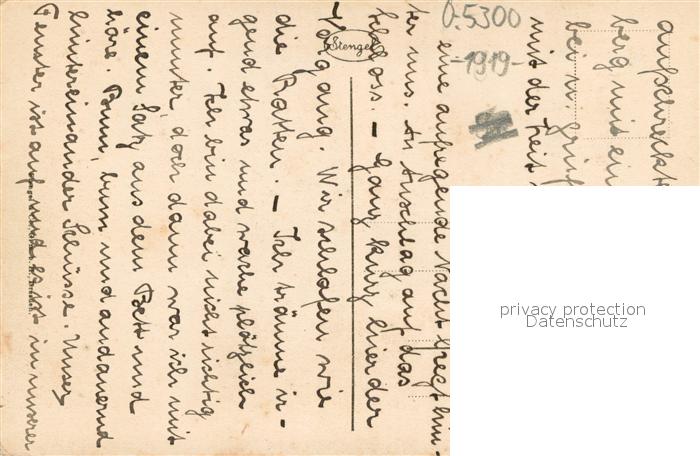 0.5300
-1919-
Stengel
privacy protection
Datenschutz
aufschreckt
berg mit ein
bei u.
mit der Zeit
eine aufregende Nacht liegt hin-
ter uns. An Anschlag auf das
schloss. – Ganz kurz hier der
Vorgang. Wir schlafen wie
die Ratten. – Ich träume ir-
gend etwas und wache plötzlich
auf. Ich bin dabei nicht richtig
munter, doch dann war ich mit
einem Satz aus dem Bett und
höre. Bum, bum und andauernd
hintereinander Schüsse. Unser
Fenster ist auf und es ist in unserer